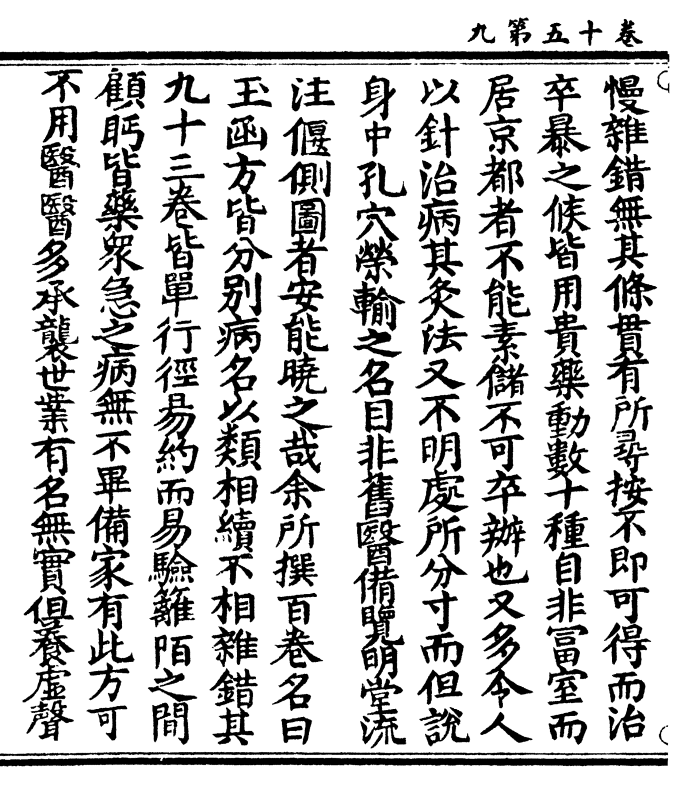 卷十五第九
慢雜錯無其條貫有所尋按不即可得而治
卒暴之候皆用貴藥動數十種自非富室而
居京都者不能素儲不可卒辦也又多令人
以針治病其灸法又不明處所分寸而但說
身中孔穴榮輸之名自非舊醫備覽明堂流
注偃側圖者安能曉之哉余所撰百卷名曰
玉函方皆分別病名以類相續不相雜錯其
九十三卷皆單行徑易約而易驗籬陌之間
顧眄皆藥衆急之病無不畢備家有此方可
不用醫醫多承襲世業有名無實但養虛聲